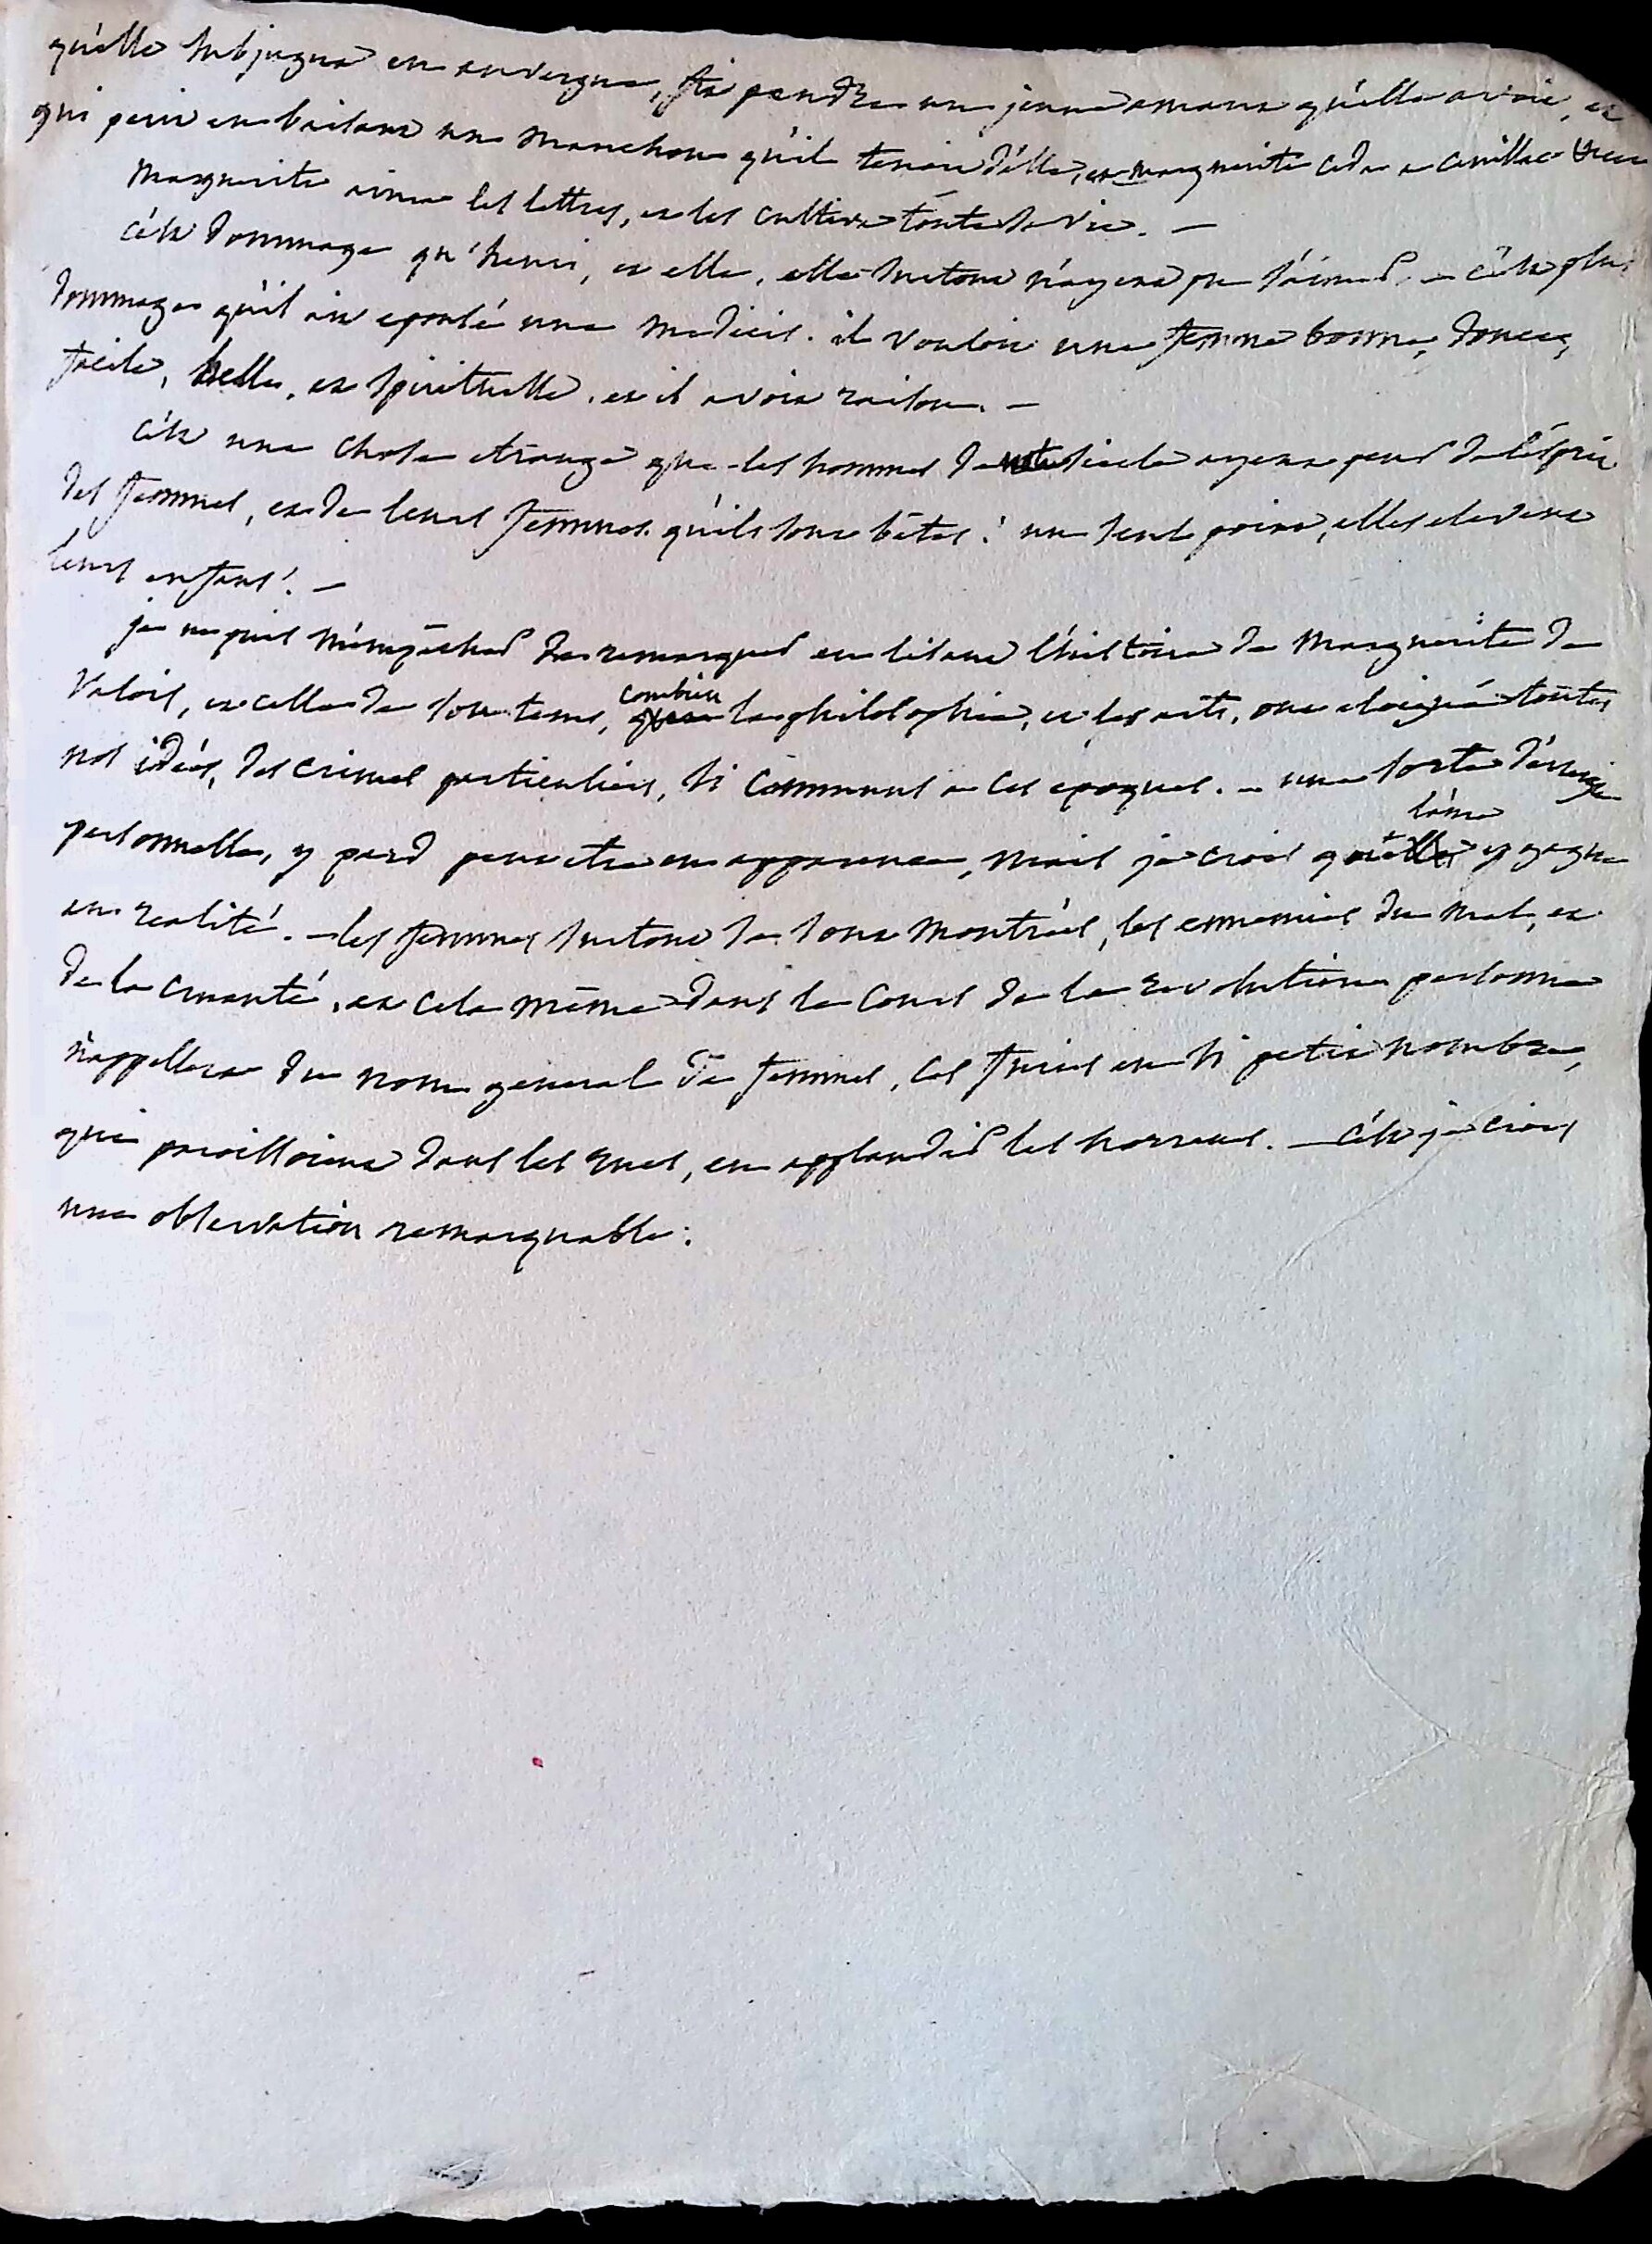 qu'elle subjugua en auvergne, fit pendre un jeune amant qu'elle avoit, et
qui perit en baisant un manchon qu'il tenoit d'elle, et marguerite ceda a canillac
Marguerite aima les lettres, et les cultiva toute sa vie. —
c'est dommage qu'henri, et elle, elle surtout n'ayent pu s'aimer. – c'est plus
dommage qu'il ait epousé une Medicis. il vouloit une femme bonne, douce,
facile, belle, et spirituelle, et il avoit raison. —
c'est une chose etrange que les hommes de notre siecle ayent peur de l'esprit
des femmes, et de leurs femmes. qu'ils sont bêtes! un seul point, elles elevent
leurs enfans! —
je ne puis m'empêcher de remarquer en lisant l'histoire de Marguerite de
Valois, et celle de son tems, combien la philosophie, et les arts, ont eloigné toutes
nos idées, des crimes particuliers, si communs a ces epoques. – une sorte d'énergie
personnelle, y perd peut etre en apparence, mais je crois que l'âme y gagne
en realité. – les femmes surtout se sont montrées, les ennemies du mal, et
de la cruauté, et cela même dans le cours de la revolution personne
n'appellera du nom general de femmes, ces furies en si petit nombre,
qui paroissoient dans les rues, en applaudir les horreurs. — c'est je crois
une observation remarquable.